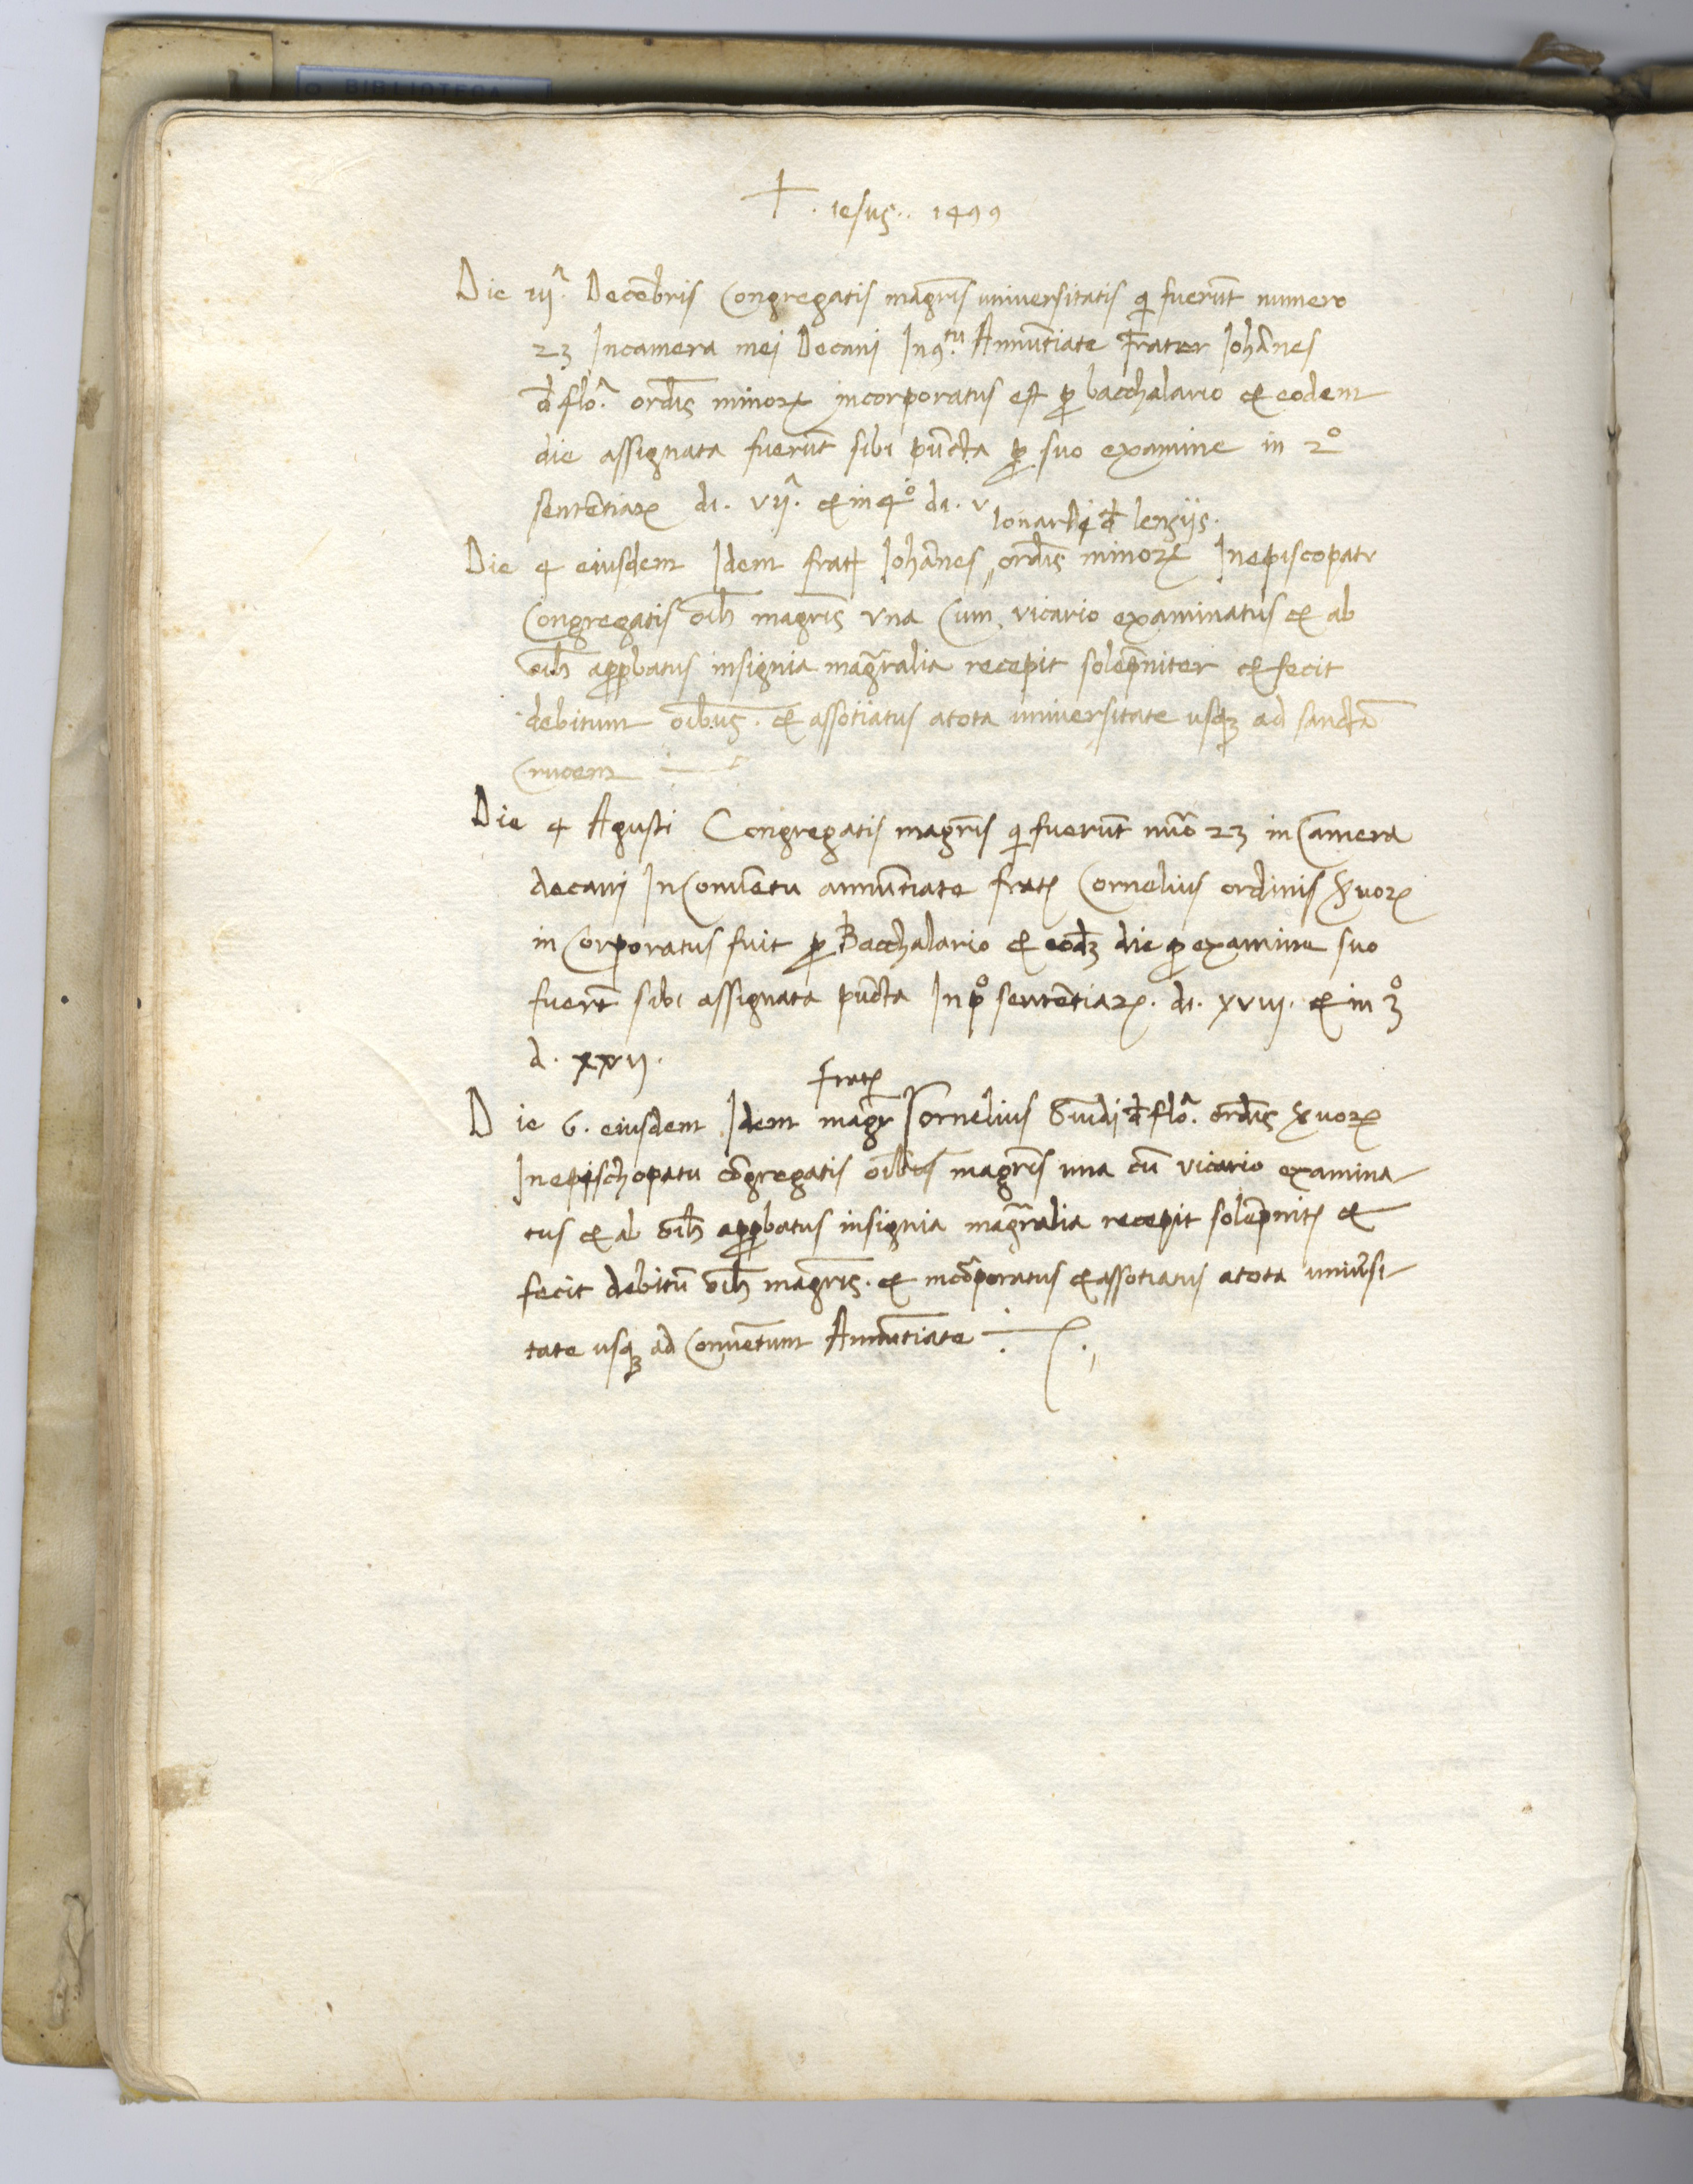 BIBLIOTECA
+ . iesus .. 1499
Die iijª. Decẽbris Congregatis magr̃is universitatis q̃ fuerũt numero
23 Incamera mei Decani In 9.tu Annũtiate Frater Johãnes
d̄ floª. ordĩs minoꝝ incorporatus est ꝓ bacchalario et eodem
die assignata fuerũt sibi pũcta ꝓ suo examine in 2º
sentẽtiaꝝ di. vijª. et in 4º di. v
lonardi d̄ lengijs.
Die 4 eiusdem Idem frat̃ Johãnes „ ordĩs minoꝝ Inepiscopatu
Congregatis oĩb magr̃is vna Cum vicario examinatus et ab
oĩb apꝓbatus insignia magr̃alia recepit solẽpniter et fecit
debitum oĩbus. et assotiatus atota universitate usqꝫ ad sanctã
Crucem
Die 4 Agusti Congregatis magr̃is q̃ fuerũt nũo 23 in Camera
decani In Convẽtu annũtiate frat̃ Cornelius ordinis Svoꝝ
in Corporatus fuit ꝓ Bacchalario et eodꝫ die ꝓ examine suo
fuerũt sibi assignata pũcta In pº sentẽtiaꝝ. di. xviij. et in 3º
d. xxvij.
frat̃
Die 6. eiusdem Idem magr̃ Cornelius Guidi d̄ floª. ordĩs Svoꝝ
Inepischopatu cõgregatis oĩbus magr̃is una cũ vicario examina-
tus et ab oĩb apꝓbatus insignia magr̃alia recepit solẽpnit̃ et
fecit debitũ oĩb magr̃is. et incõrporatus et assotiatus atota uniṽsi-
tate usqꝫ ad Convẽtum Annũtiate